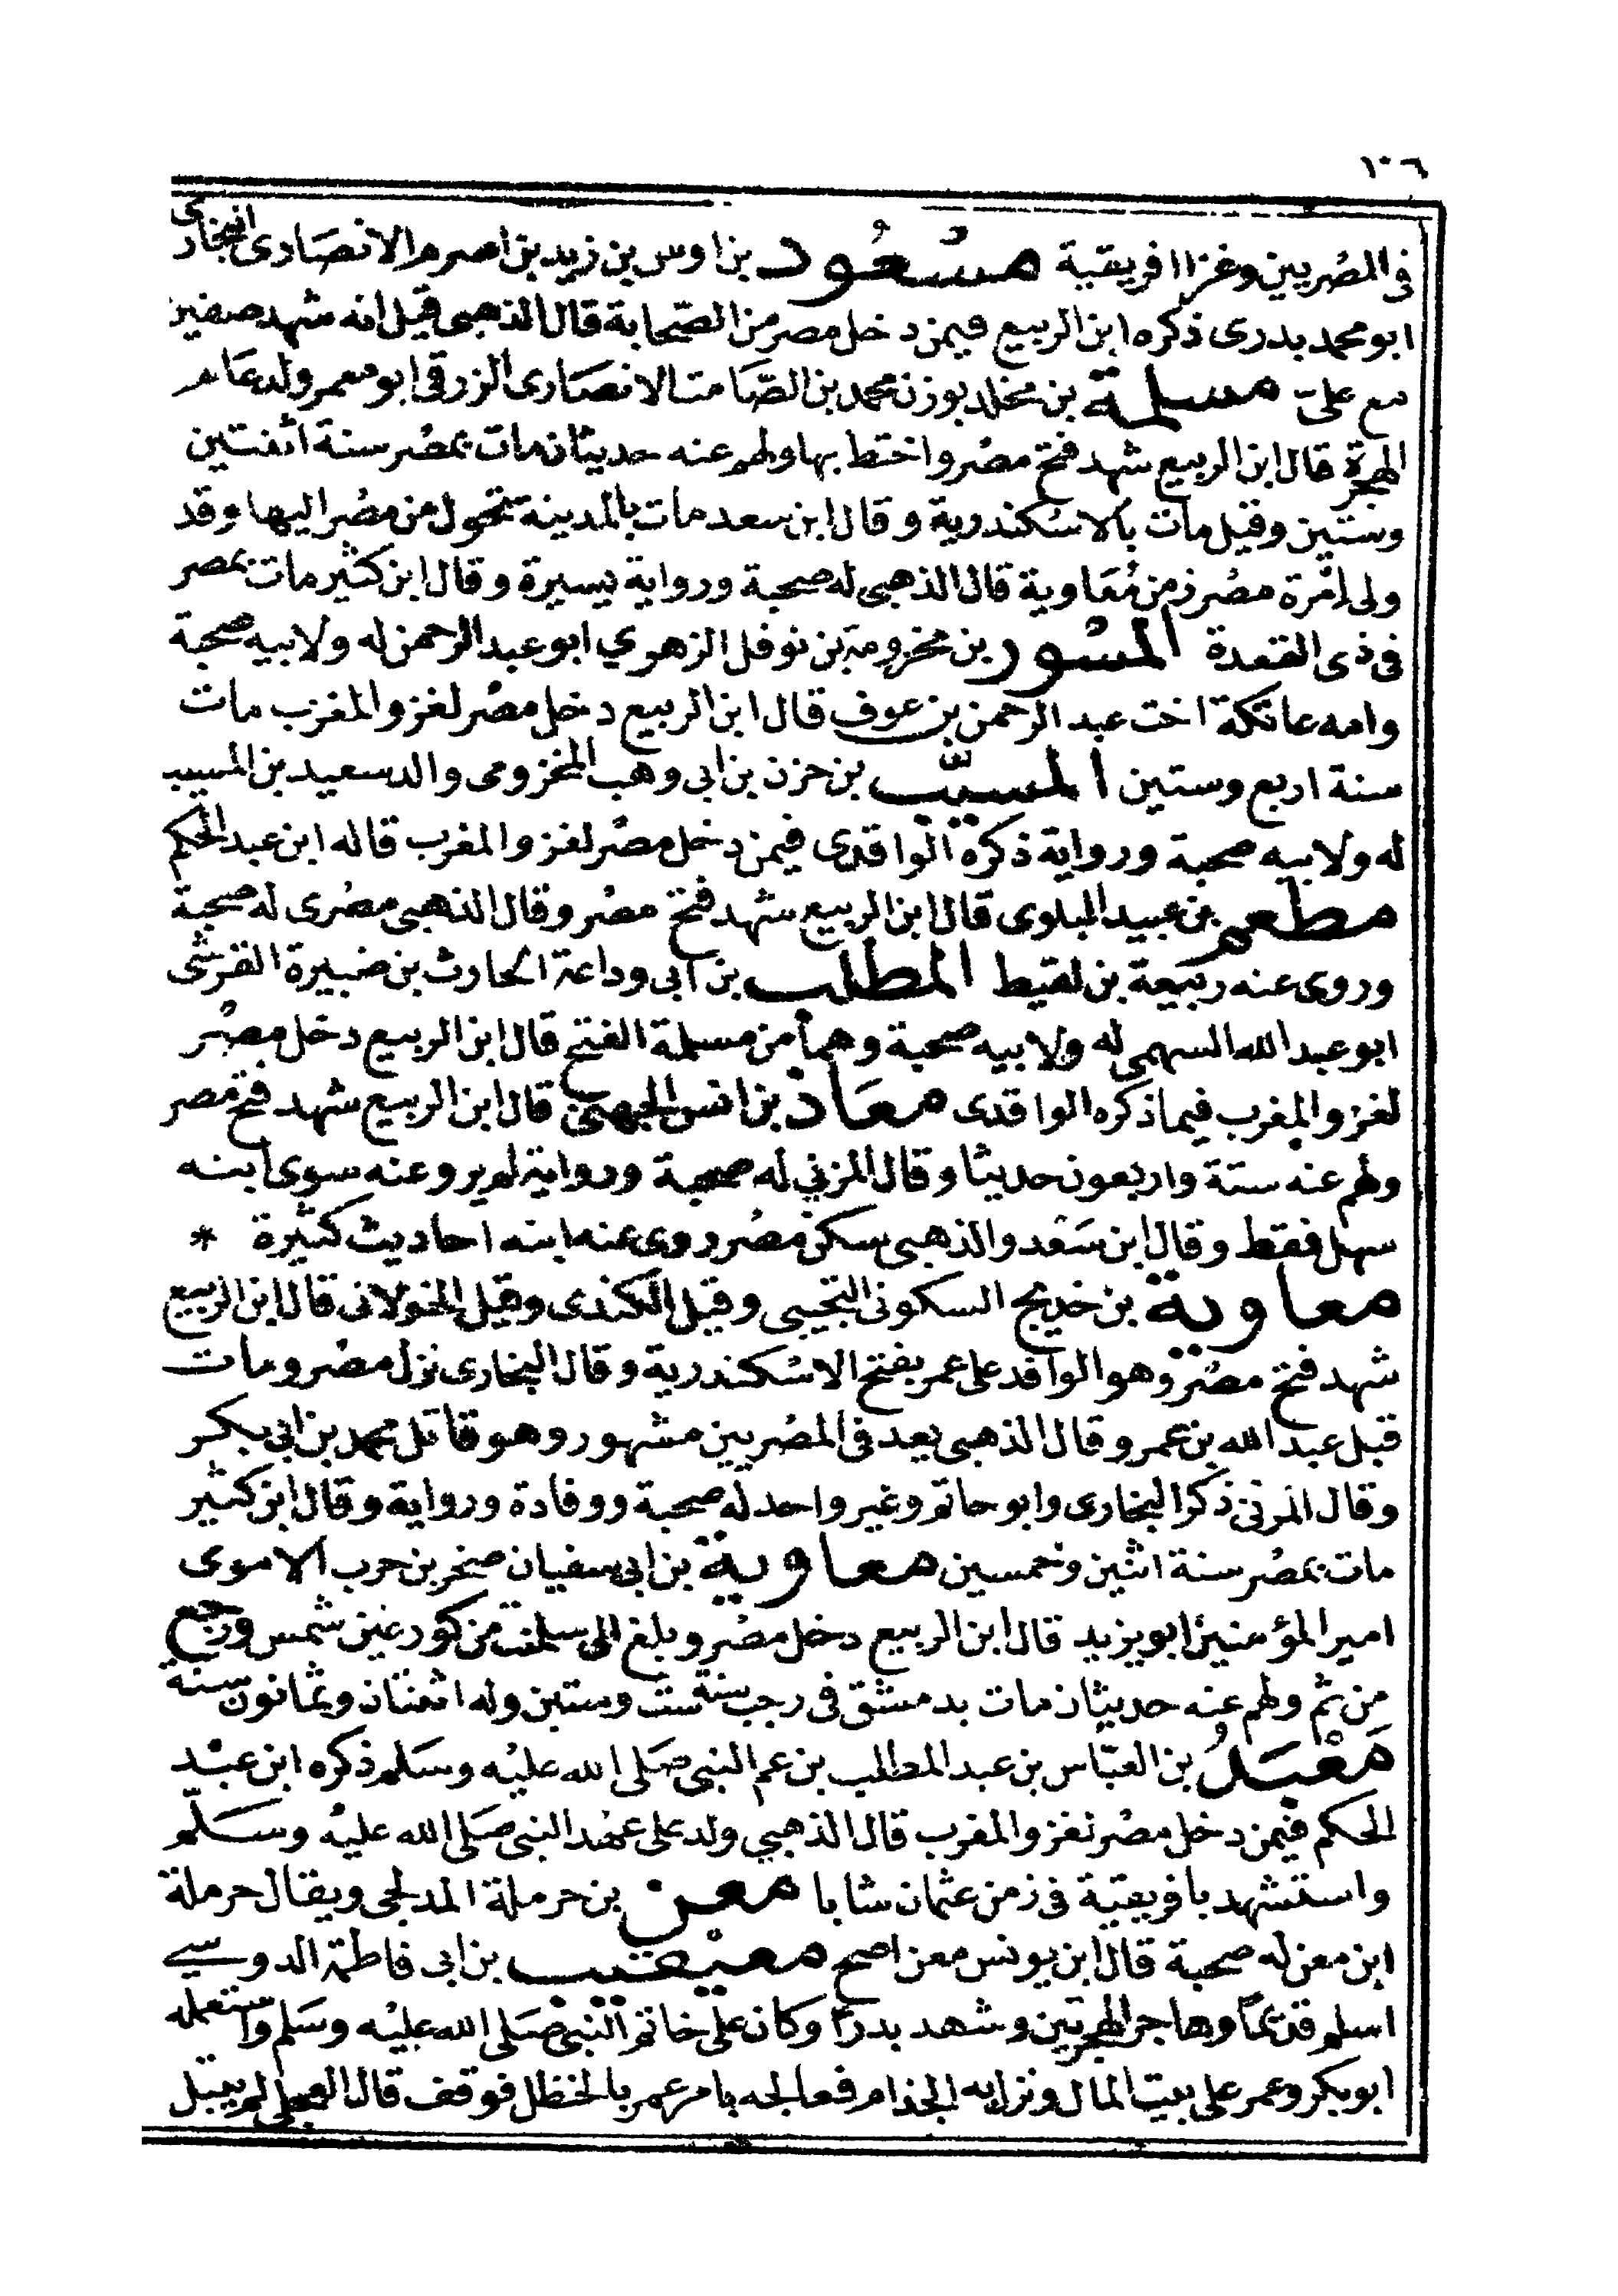 ١٠٦
فى المصْريين وغزا افريقية مسْعُود بن اوس بن زيد بن اصرم الانصَارى النجارى
ابو محمد بدرى ذكره ابن الربيع فيمن دخل مصر من الصّحابة قال الذهبى قيل انه شهد صفين
مع علىّ مسلمة بن مخلد بوزن محمد بن الصّامت الانصَارى الزرقى ابو معمر ولد عام
الهجرة قال ابن الربيع شهد فتح مصْر واختط بها ولهم عنه حديثان مات بمصْر سنة اثنتين
وستين وقيل مات بالاسْكندرية وقال ابن سعد مات بالمدينة تحول من مصْر اليها وقد
ولى امْرة مصْر زمن مُعَاوية قال الذهبى له صحبة ورواية يسيرة وقال ابن كثير مات بمصر
فى ذى القعدة المسْور بن مخرومة بن نوفل الزهري ابو عبد الرحمن له ولابيه صحبة
وامه عاتكة اخت عبد الرحمن بن عوف قال ابن الربيع دخل مصْر لغزو المغرب مات
سنة اربع وستين المسيّب بن حزن بن ابى وهب المخزومى والد سعيد بن المسيب
له ولابيه صحبة ورواية ذكره الواقدى فيمن دخل مصْر لغزو المغرب قاله ابن عبد الحكم
مطعم بن عبيد البلوى قال ابن الربيع شهد فتح مصْر وقال الذهبى مصْرى له صحبة
وروى عنه ربيعة بن لقيط المطلب بن ابى وداعة الحارث بن ضبيرة القرشى
ابو عبد الله السهمى له ولابيه صحبة وهما من مسلمة الفتح قال ابن الربيع دخل مصْر
لغزو المغرب فيما ذكره الواقدى معَاذ بن انس الجهنى قال ابن الربيع شهد فتح مصر
ولهم عنه ستة واربعون حديثا وقال المزني له صحبة ورواية لم يرو عنه سوى ابنه
سهل فقط وقال ابن سَعْد والذهبى سكن مصْر روى عنه ابنه احاديث كثيرة *
معاوية بن خديج السكونى التجيبى وقيل الكندى وقيل الخولانى قال ابن الربيع
شهد فتح مصْر وهو الوافد على عمر بفتح الاسْكندرية وقال البخارى نزل مصْر ومات
قبل عبد الله بن عمر وقال الذهبى يعد فى المصْريين مشهور وهو قاتل محمد بن ابى بكر
وقال المزنى ذكر البخارى وابو حاتم وغير واحد له صحبة ووفادة ورواية وقال ابن كثير
مات بمصْر سنة اثنين وخمسين معاوية بن ابى سفيان صخر بن حرب الاموى
امير المؤمنين ابو يزيد قال ابن الربيع دخل مصْر وبلغ الى سلمنت من كور عين شمس ورجع
من ثم ولهم عنه حديثان مات بدمشق فى رجب سنة ست وستين وله اثنتان وثمانون سنة
مَعْبَدُ بن العبّاس بن عبد المطلب بن عم النبى صَلى الله عليْه وسَلم ذكره ابن عبْد
الحكم فيمن دخل مصْر لغزو المغرب قال الذهبي ولد على عهْد النبى صَلى الله عليْه وسَلّم
واستشهد بافريقية فى زمن عثمان شابا معن بن حرملة المدلجى ويقال حرملة
ابن معن له صحبة قال ابن يونس معن اصح معيْقيب بن ابى فاطمة الدوسي
اسلم قديمًا وهاجر الهجرتين وشهد بدرًا وكان على خاتم النبى صَلى الله عليْه وسَلم واستعمله
ابو بكر وعمر على بيت المال ونزل به الجذام فعالجه بامر عمر بالحنظل فوقف قال العجلى لم يبتل